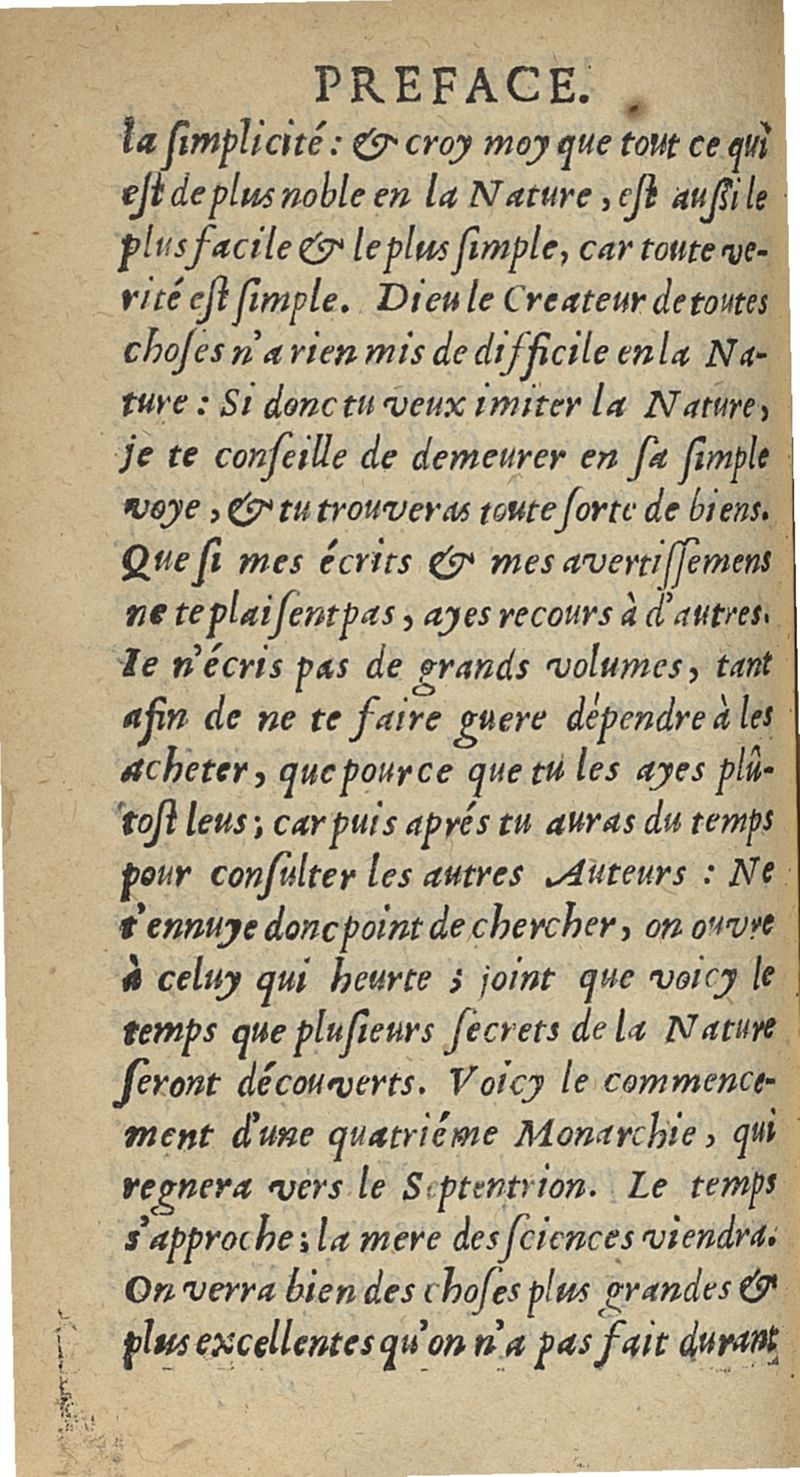 PREFACE.
la ſimplicité : & croy moy que tout ce qui
eſt de plus noble en la Nature , eſt auſſi le
plus facile & le plus ſimple, car toute ve-
rité eſt ſimple. Dieu le Createur de toutes
choſes n'a rien mis de difficile en la Na-
ture : Si donc tu veux imiter la Nature,
je te conſeille de demeurer en ſa ſimple
voye , & tu trouveras toute ſorte de biens.
Que ſi mes écrits & mes avertiſſemens
ne te plaiſent pas , ayes recours à d'autres.
Ie n'écris pas de grands volumes, tant
afin de ne te faire guere dépendre à les
acheter, que pour ce que tu les ayes plû-
toſt leus ; car puis aprés tu auras du temps
pour conſulter les autres Auteurs : Ne
t'ennuye donc point de chercher, on ouvre
à celuy qui heurte ; joint que voicy le
temps que pluſieurs ſecrets de la Nature
ſeront découverts. Voicy le commence-
ment d'une quatriéme Monarchie, qui
regnera vers le Septentrion. Le temps
s'approche ; la mere des ſciences viendra.
On verra bien des choſes plus grandes &
plus excellentes qu'on n'a pas fait durant